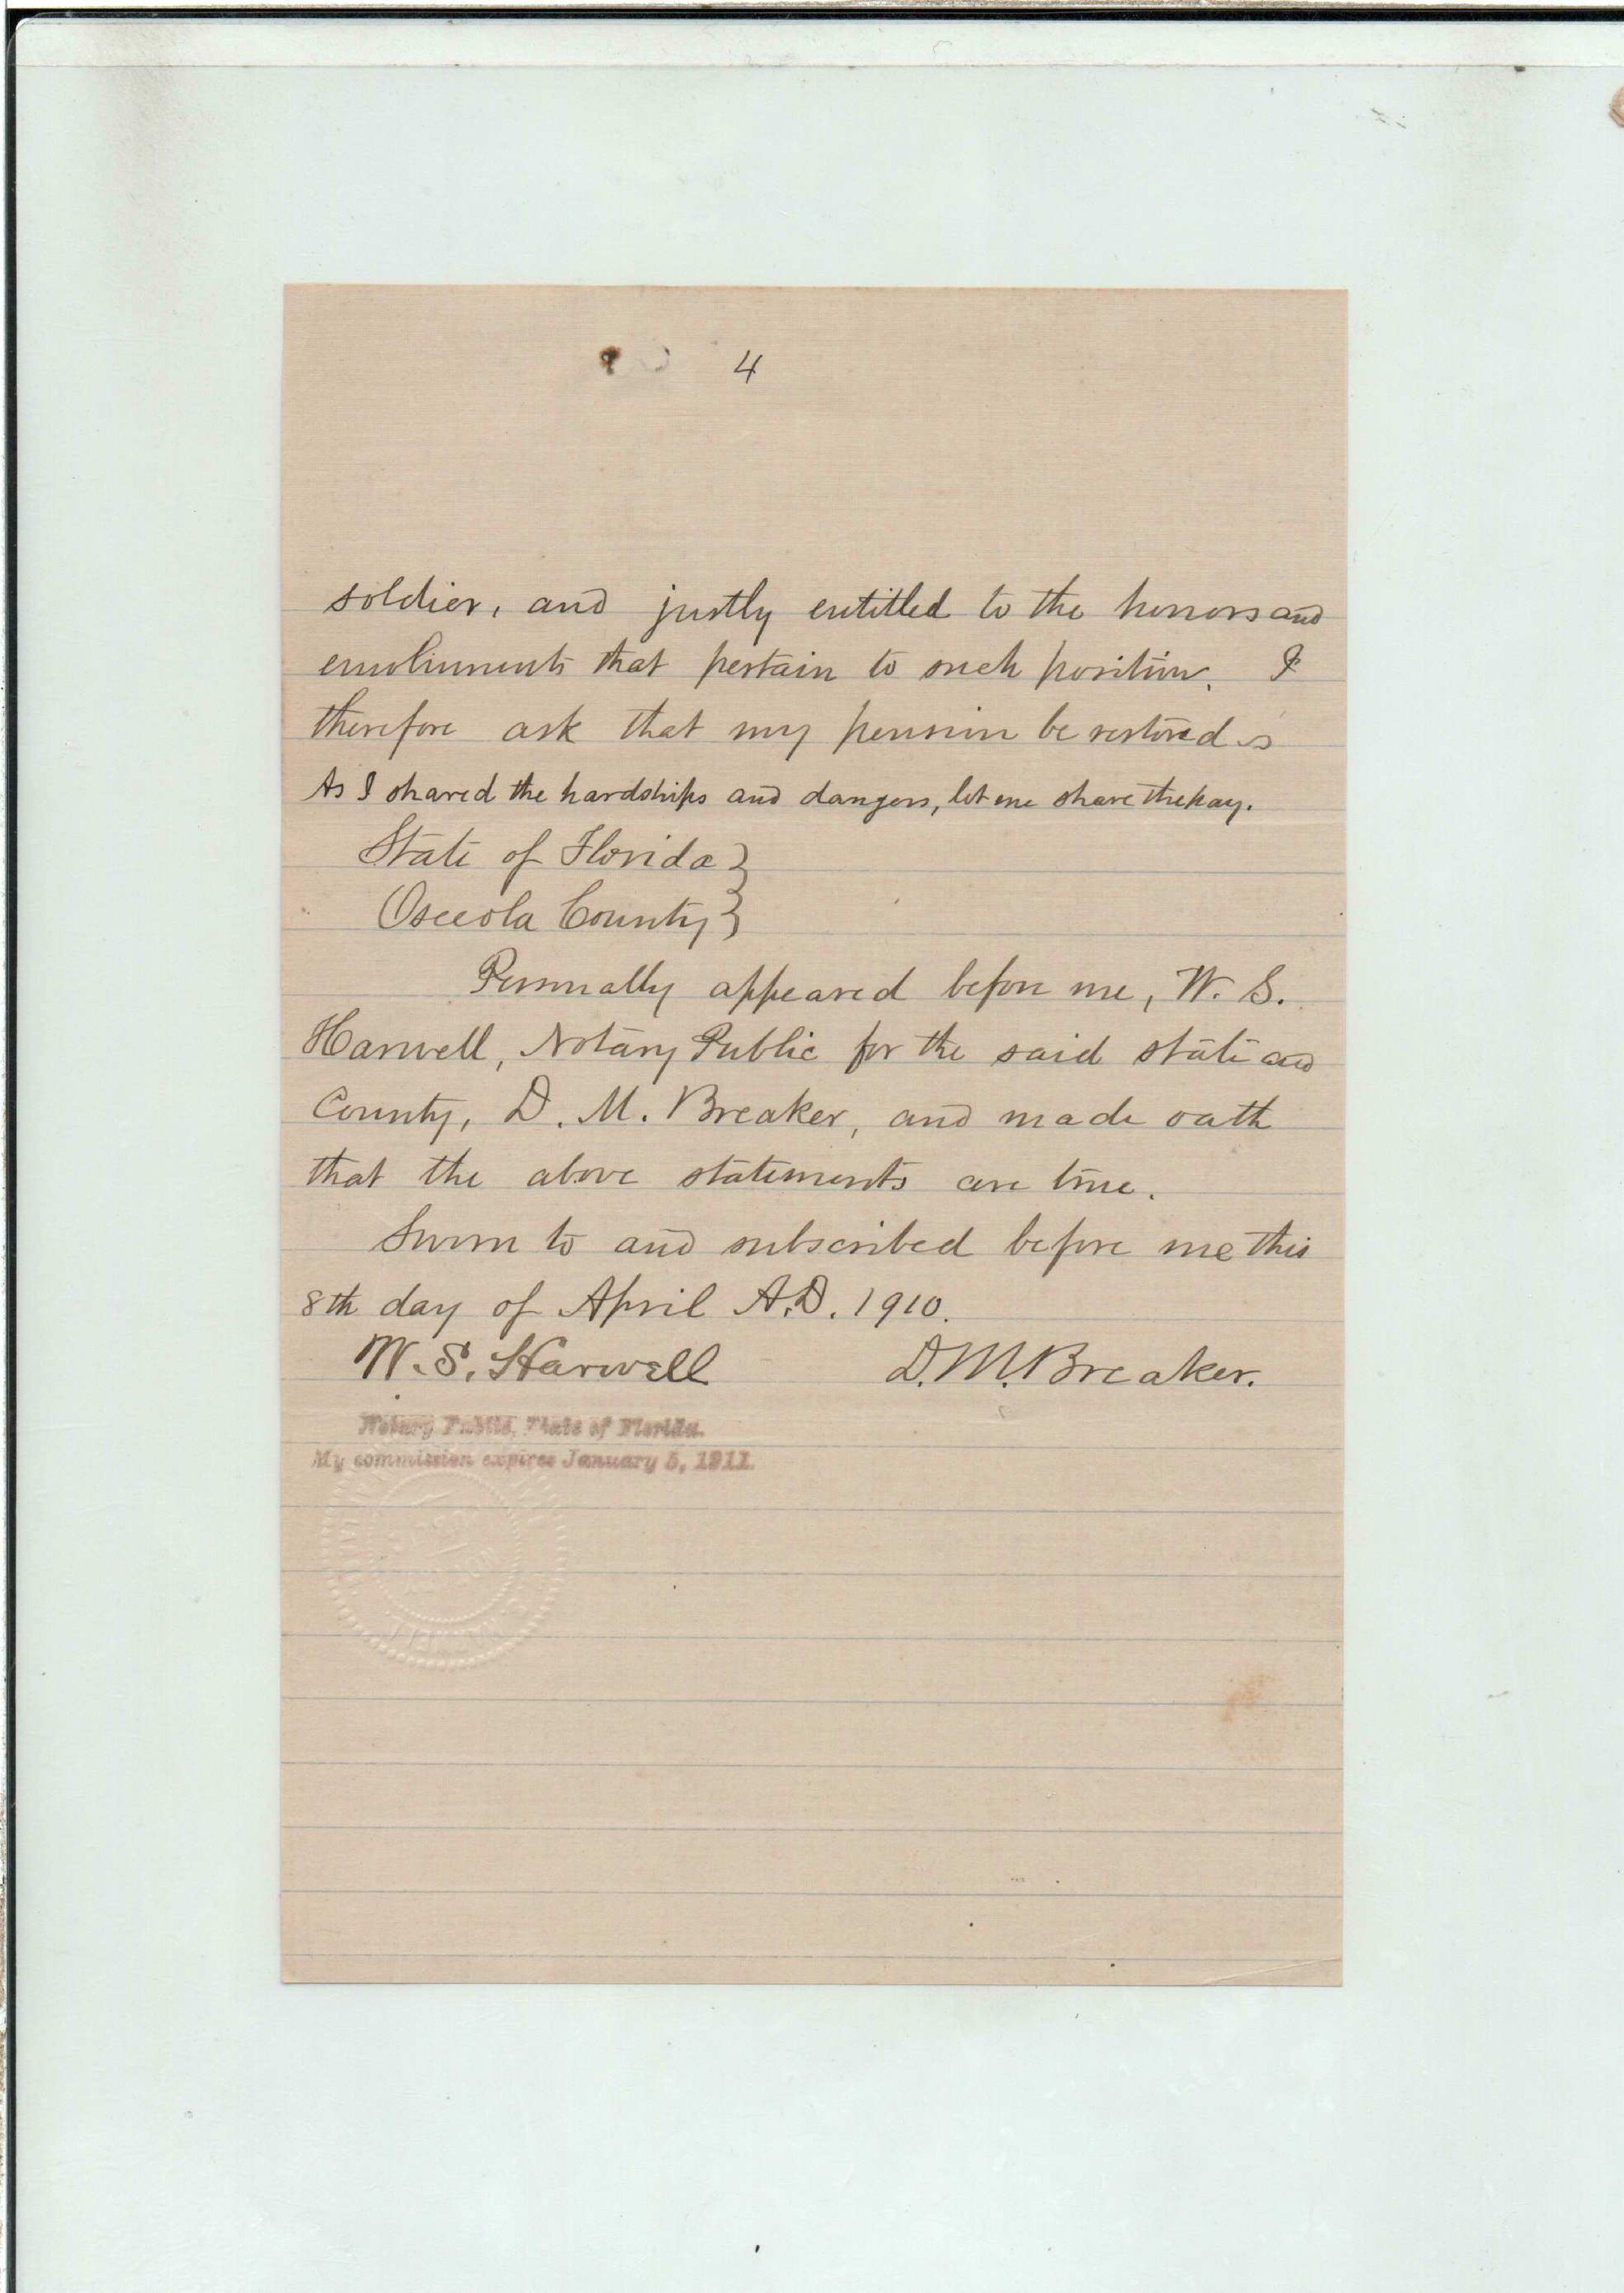 4
soldier, and justly entitled to the honors and
emoluments that pertain to such position. I
therefore ask that my pension be restored.
As I shared the hardships and dangers, let me share the pay.
State of Florida }
Osceola County }
Personally appeared before me, W. S.
Harwell, Notary Public for the said state and
County, D. M. Breaker, and made oath
that the above statements are true.
Sworn to and subscribed before me this
8th day of April A.D. 1910.
W. S. Harwell D. M. Breaker.
Notary Public, State of Florida.
My commission expires January 5, 1911.